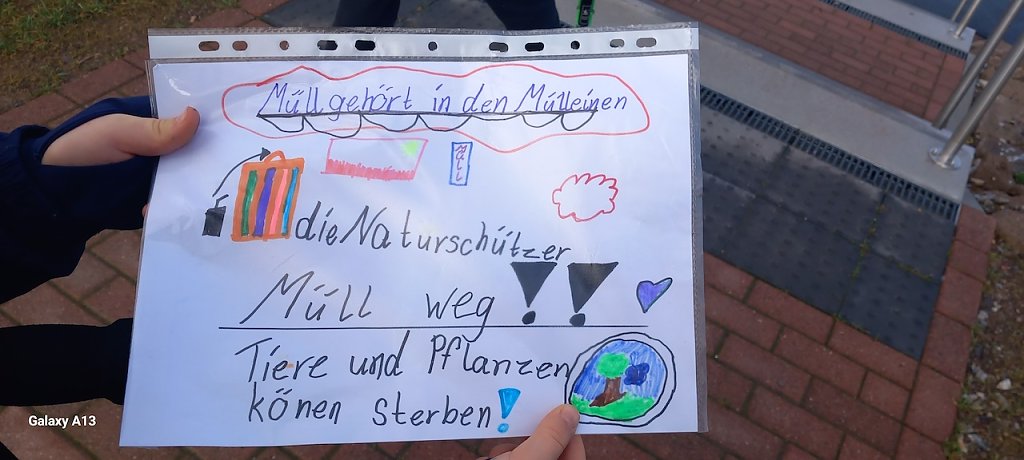 Müll gehört in den Mülleinen
MÜLL
die Naturschützer
Müll weg!!
Tiere und Pflanzen
könen sterben!
Galaxy A13